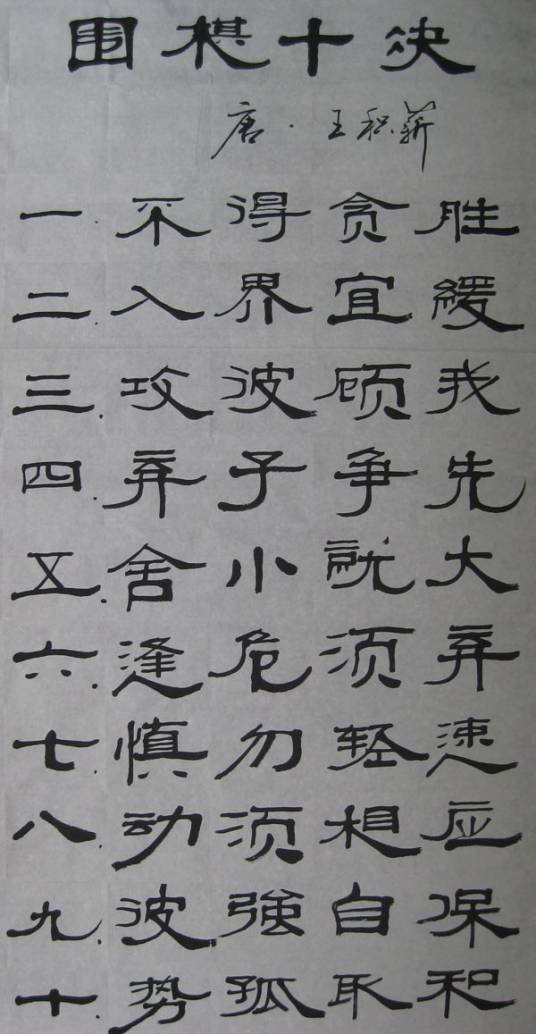 围棋十决
唐·王积薪
一.不得贪胜
二.入界宜緩
三.攻彼顾我
四.弃子争先
五.舍小就大
六.逢危须弃
七.慎勿轻速
八.动须相应
九.彼強自保
十.势孤取和